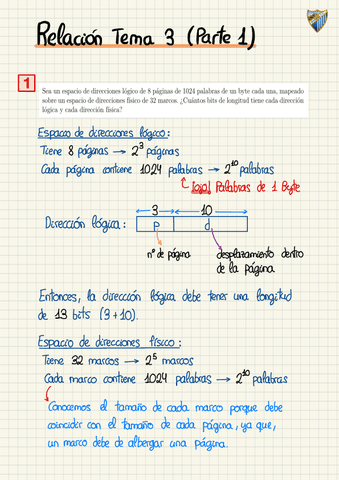 Relación Tema 3 (Parte 1)
1
Sea un espacio de direcciones lógico de 8 páginas de 1024 palabras de un byte cada una, mapeado
sobre un espacio de direcciones físico de 32 marcos. ¿Cuántos bits de longitud tiene cada dirección
lógica y cada dirección física?
Espacio de direcciones lógico:
Tiene 8 páginas → 2³ páginas
Cada página contiene 1024 palabras → 2¹⁰ palabras
¡ojo! Palabras de 1 Byte
3 10
Dirección lógica: p d
nº de página desplazamiento dentro
de la página
Entonces, la dirección lógica debe tener una longitud
de 13 bits (3+10).
Espacio de direcciones físico:
Tiene 32 marcos → 2⁵ marcos
Cada marco contiene 1024 palabras → 2¹⁰ palabras
Conocemos el tamaño de cada marco porque debe
coincidir con el tamaño de cada página, ya que,
un marco debe de albergar una página.